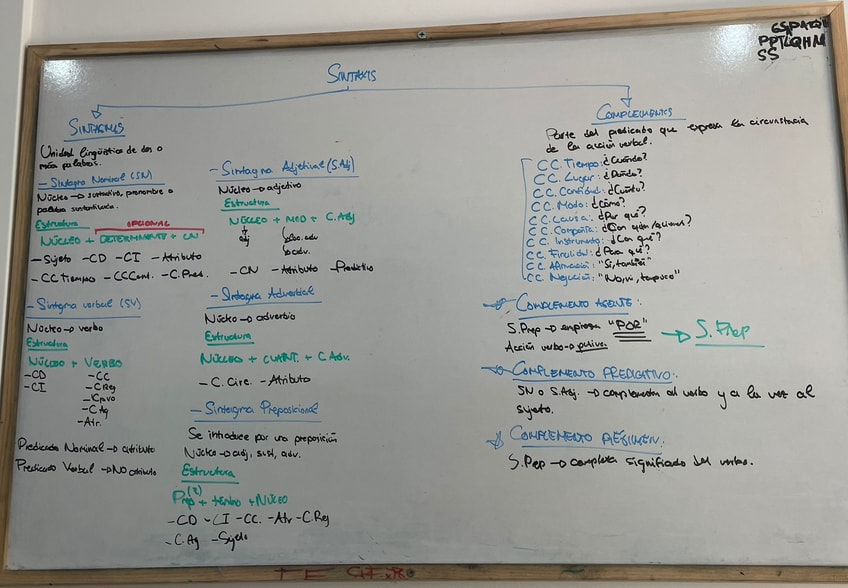 ESPAÑA
PPTLQHM
SS
SINTAXIS
SINTAGMAS
Unidad lingüística de dos o
más palabras.
- Sintagma Nominal (SN)
Núcleo → sustantivo, pronombre o
palabra sustantivada.
Estructura OPCIONAL
NÚCLEO + DETERMINANTE + CN
- Sujeto - CD - CI - Atributo
- CC Tiempo - CCCant. - C. Pred.
- Sintagma verbal (SV)
Núcleo → verbo
Estructura
NÚCLEO + VERBO
- CD - CC
- CI - C Reg
- C Pvo
- C Ag
- Atr.
Predicado Nominal → atributo
Predicado Verbal → NO atributo
- Sintagma Adjetival (S.Adj)
Núcleo → adjetivo
Estructura
NÚCLEO + MOD + C. Adj
adj loc. adv
adv.
- CN - Atributo - Predictivo
- Sintagma Adverbial
Núcleo → adverbio
Estructura
NÚCLEO + CUANT. + C. Adv.
- C. Circ. - Atributo
- Sintagma Preposicional
Se introduce por una preposición
Núcleo → adj, sust, adv.
Estructura
Prep + término + Núcleo
- CD - CI - CC. - Atr - C. Reg
- C. Ag - Sujeto
COMPLEMENTOS
Parte del predicado que expresa la circunstancia
de la acción verbal.
C C. Tiempo: ¿Cuándo?
C C. Lugar: ¿Dónde?
C C. Cantidad: ¿Cuánto?
C C. Modo: ¿Cómo?
C C. Causa: ¿Por qué?
C C. Compañía: ¿Con quién/quienes?
C C. Instrumento: ¿Con qué?
C C. Finalidad: ¿Para qué?
C C. Afirmación: "Sí, también"
C C. Negación: "No, ni, tampoco"
COMPLEMENTO AGENTE:
S. Prep → empieza "POR" → S. Prep
Acción verbo → pasiva.
COMPLEMENTO PREDICATIVO:
SN o S. Adj. → complementa al verbo y a la vez al
sujeto.
COMPLEMENTO RÉGIMEN:
S. Prep → completa significado del verbo.